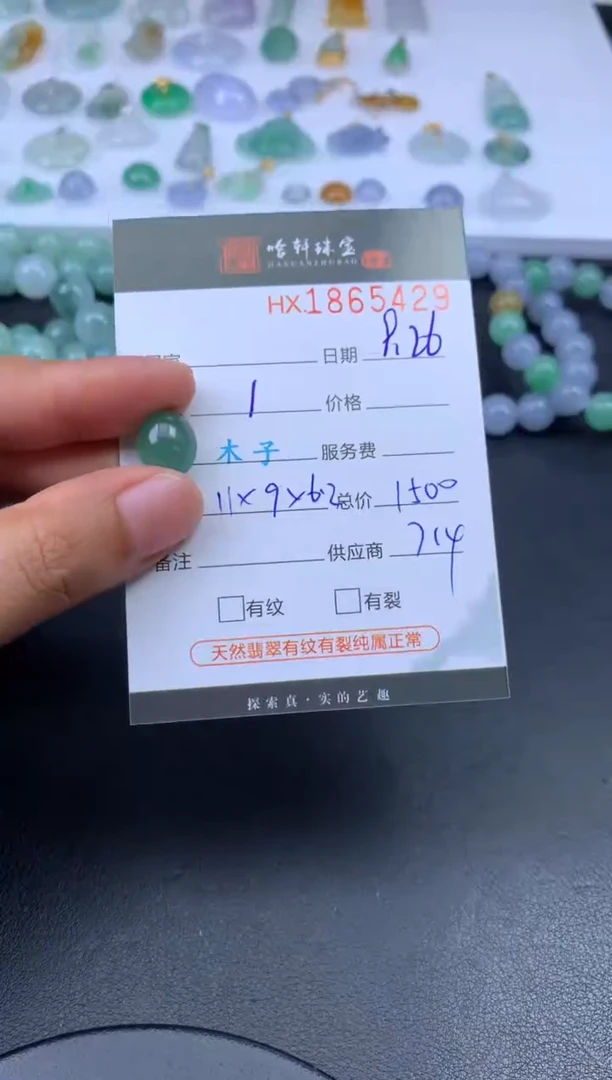 哈轩珠宝
HAXUANZHUBAO
HX.1865429
日期 8.26
1 价格
木子 服务费
11×9×6.2 总价 1500
备注 供应商 714
□有纹 □有裂
天然翡翠有纹有裂纯属正常
探索真·实的艺趣